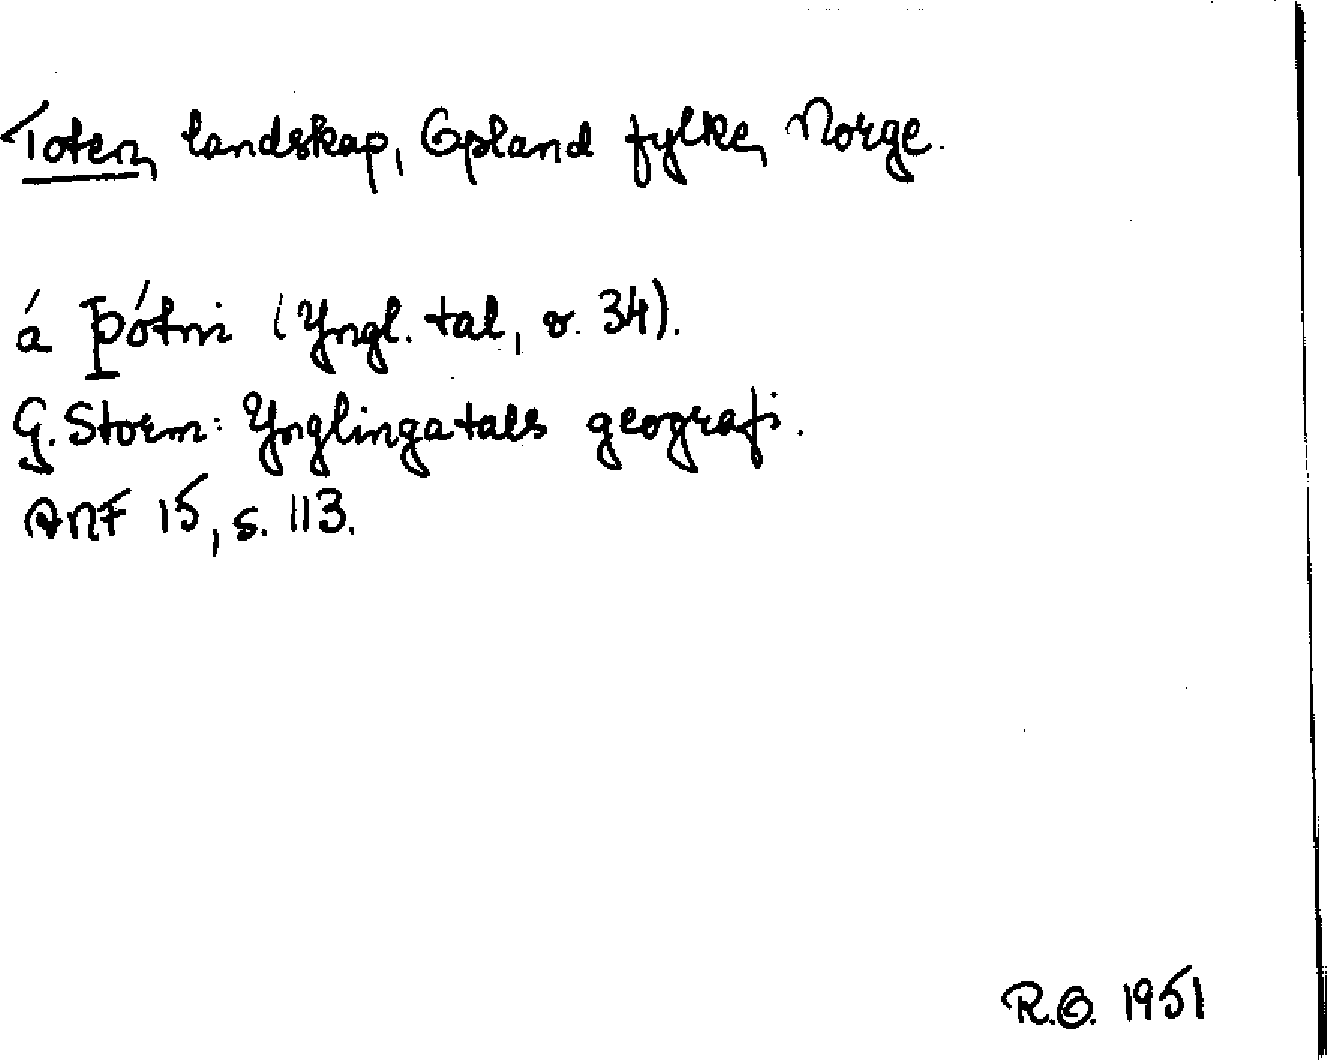 Toten, landskap, Opland fylke, Norge.
á Þótni (Yngl. tal, v. 34).
G. Storm: Ynglingatals geografi.
ANF 15, s. 113.
R.O. 1951